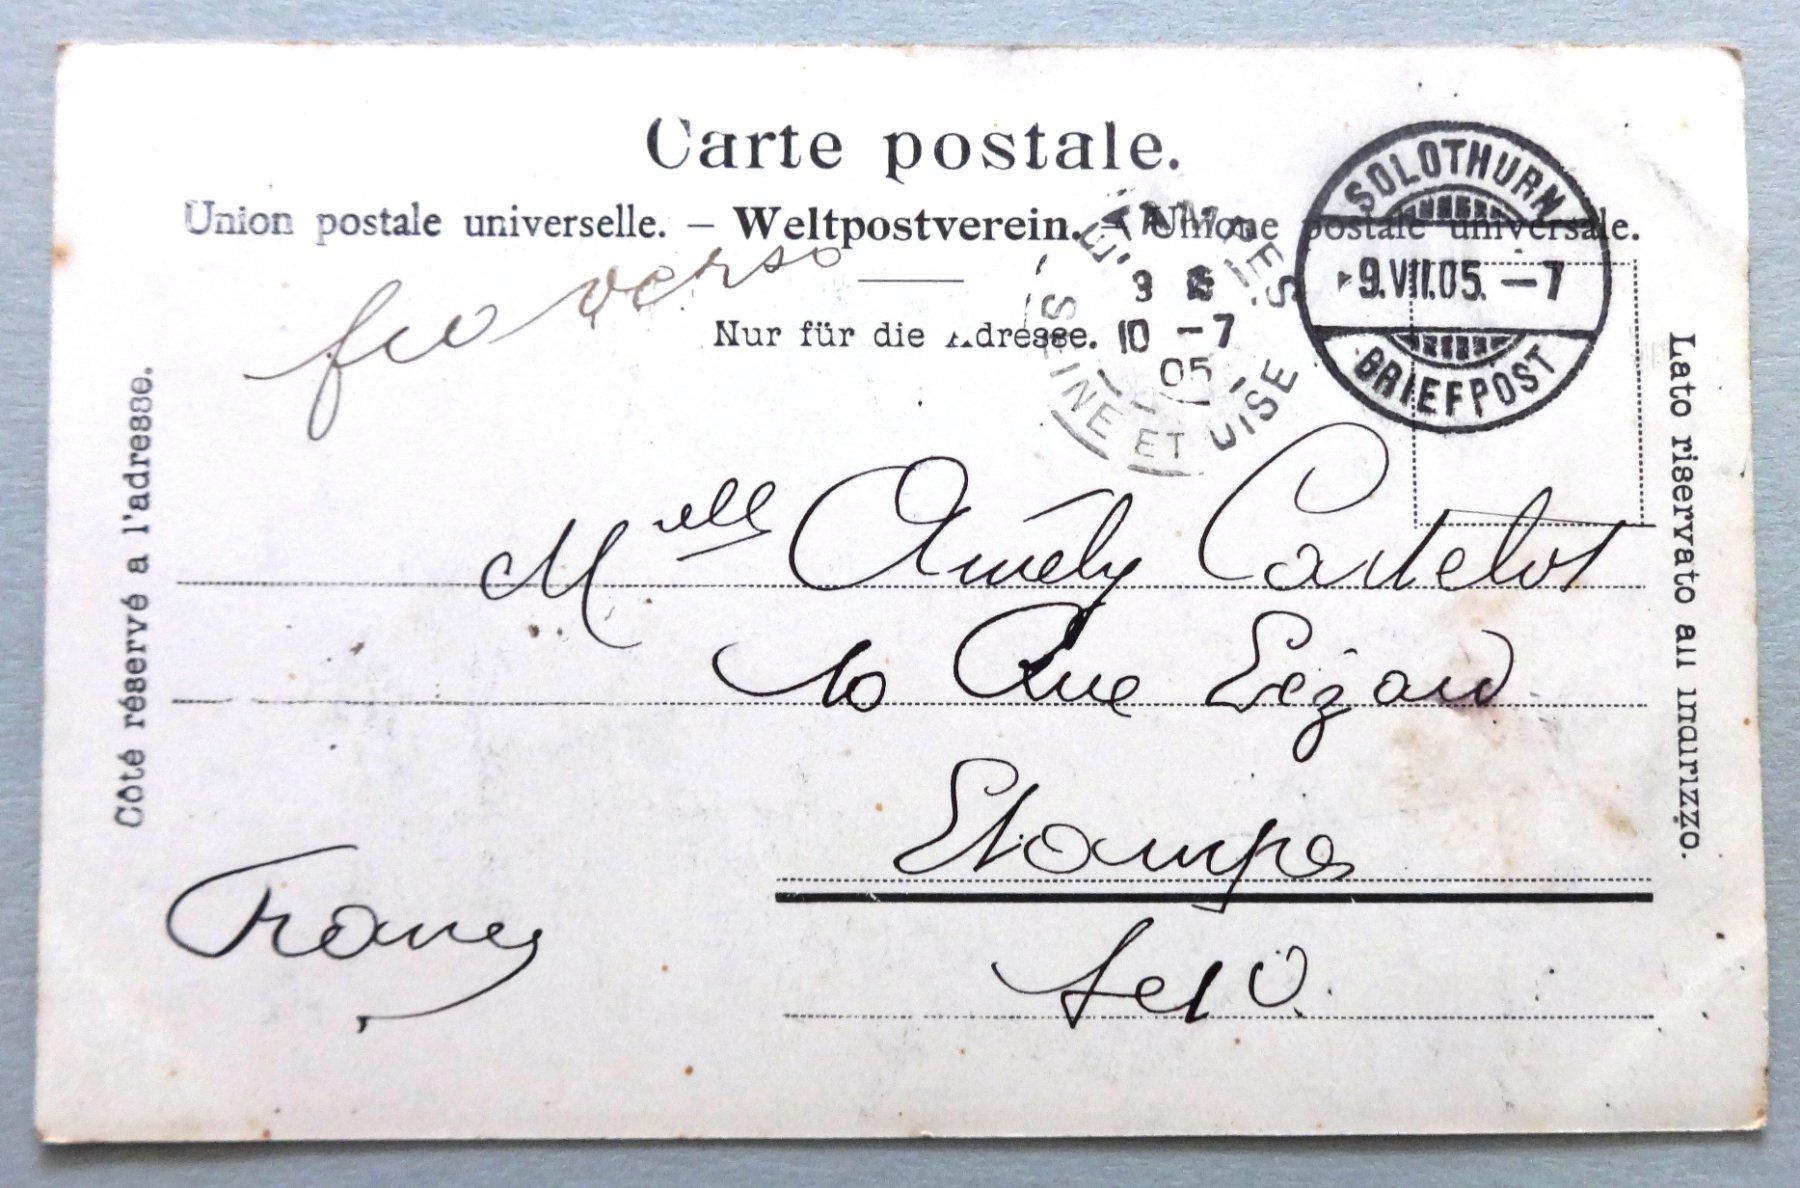 Carte postale.
Union postale universelle. – Weltpostverein. – Unione postale universale.
Nur für die Adresse.
Côté réservé a l'adresse.
Lato riservato all indirizzo.
verso
SOLOTHURN
9.VII.05.–7
BRIEFPOST
ETAMPES
3
10 –7
05
SEINE ET OISE
Melle Amély
10 Rue Lézard
Etampes
France
S et O.